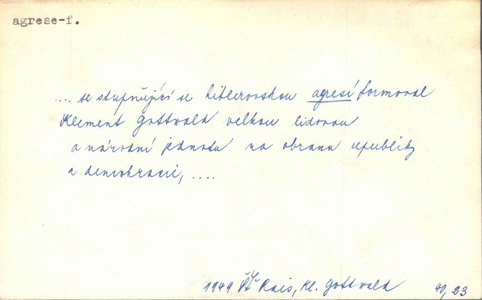 agrese-f.
... se stupňující se hitlerovskou agresí formoval
Klement Gottwald velkou lidovou
a národní jednotu na obranu republiky
a demokracie, ....
1949 Rais, Kl. Gottwald 40, 23